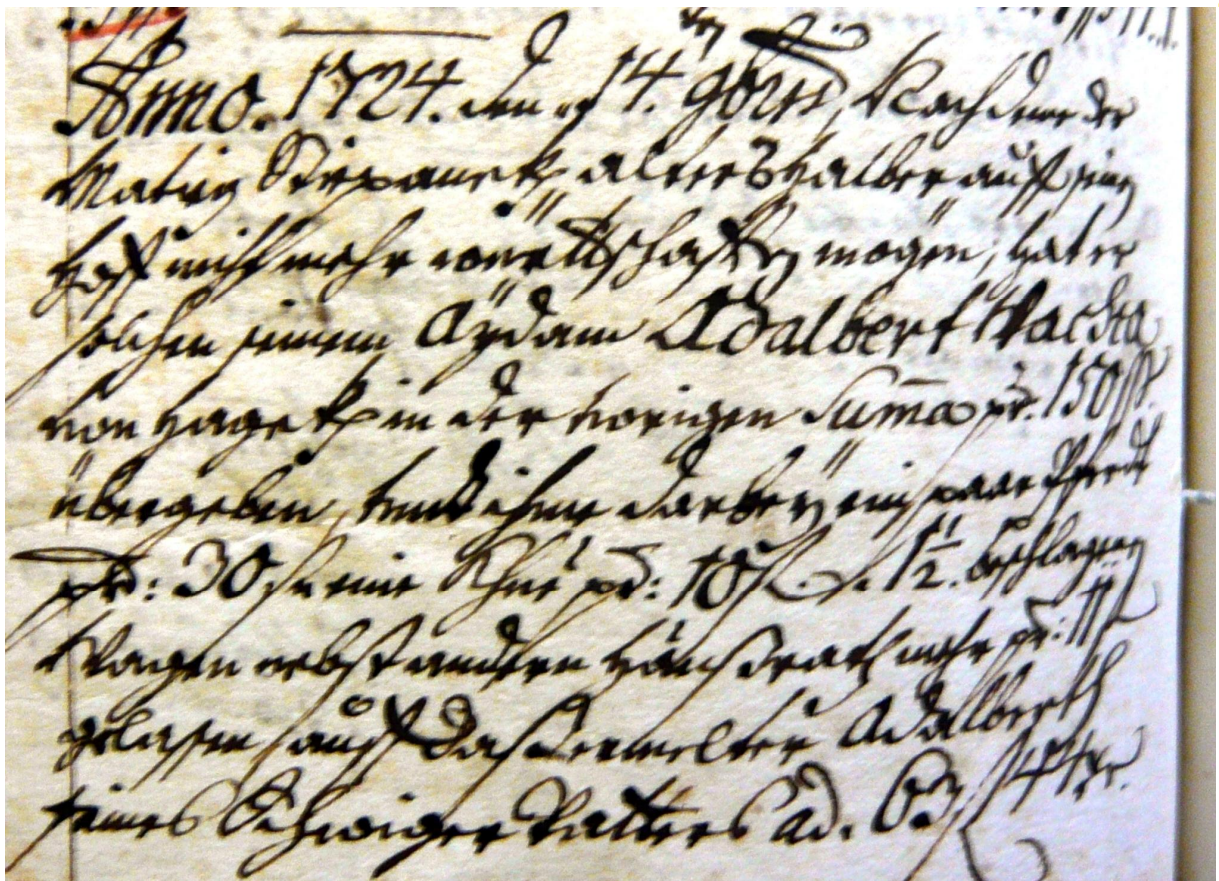 Anno. 1724. den 14. 9bris, Nachdeme der
Matieg Stiepanek, alters halber auff sein
hoff nicht mehr württschafften mögen, hat er
solchen seinem Aydam Adalbert Wacha
von Hagek in der vorigen Summa pr. 150
übergeben, undt ihme darbey ein paar Pferdt
pr: 30 eine Khue pr: 10 1½. beschlagen
Wagen nebst andern haußrath mehr pr:
gelassen, auff daß ermelter Adalberth
seines Schwiger Vatters